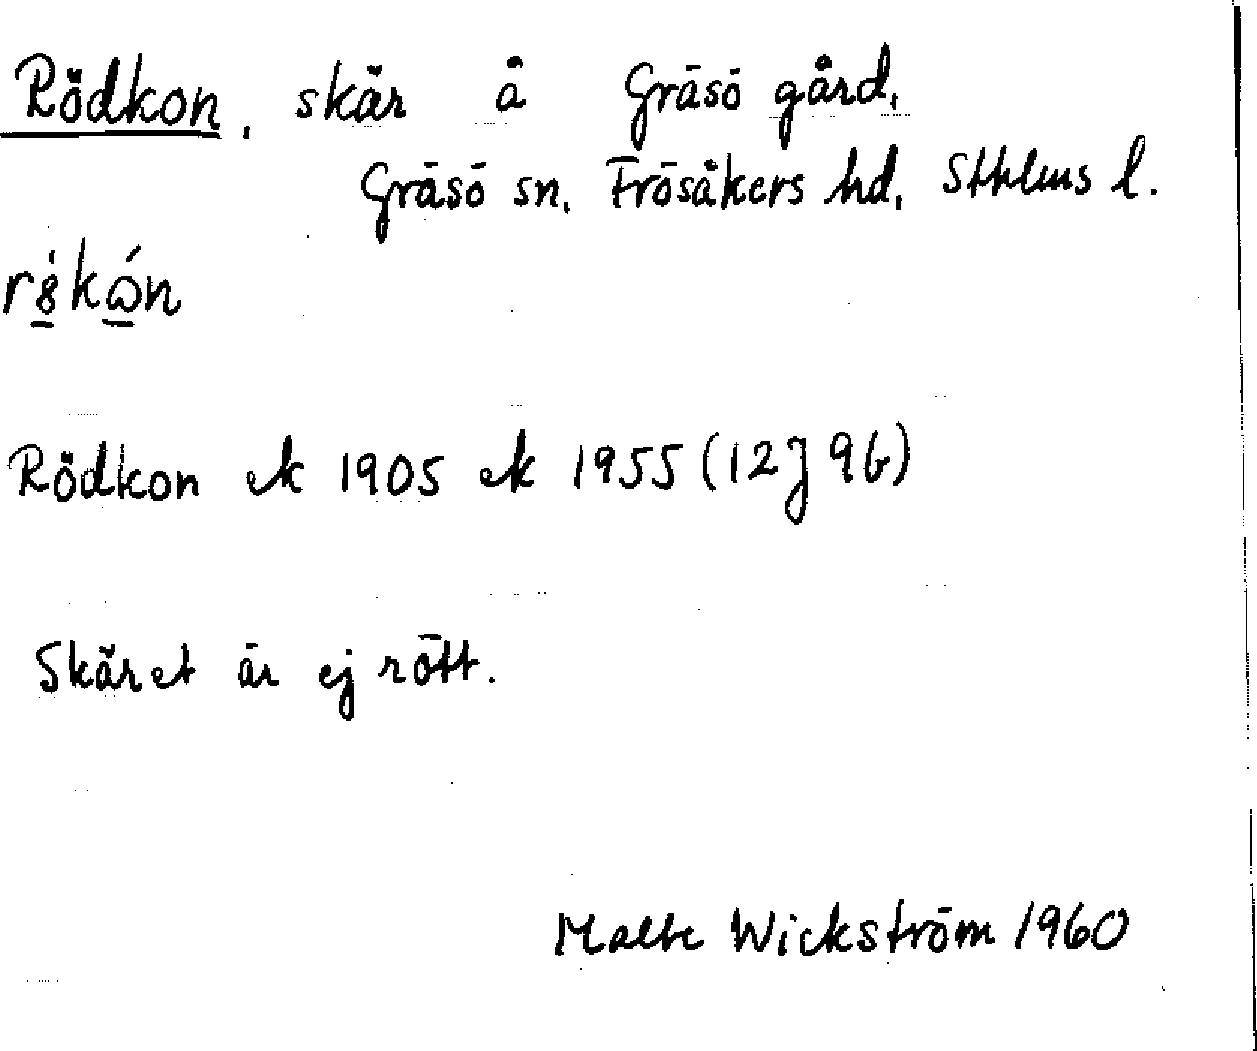 Rödkon, skär å Gräsö gård,
Gräsö sn, Frösåkers hd, Sthlms l.
Rödkon ek 1905 ek 1955 (12J 9b)
Skäret är ej rött.
Malte Wickström 1960